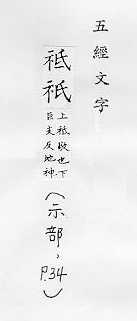 五經文字
祗祇
上祗敬也下
巨支反地神
（示部，P.34）